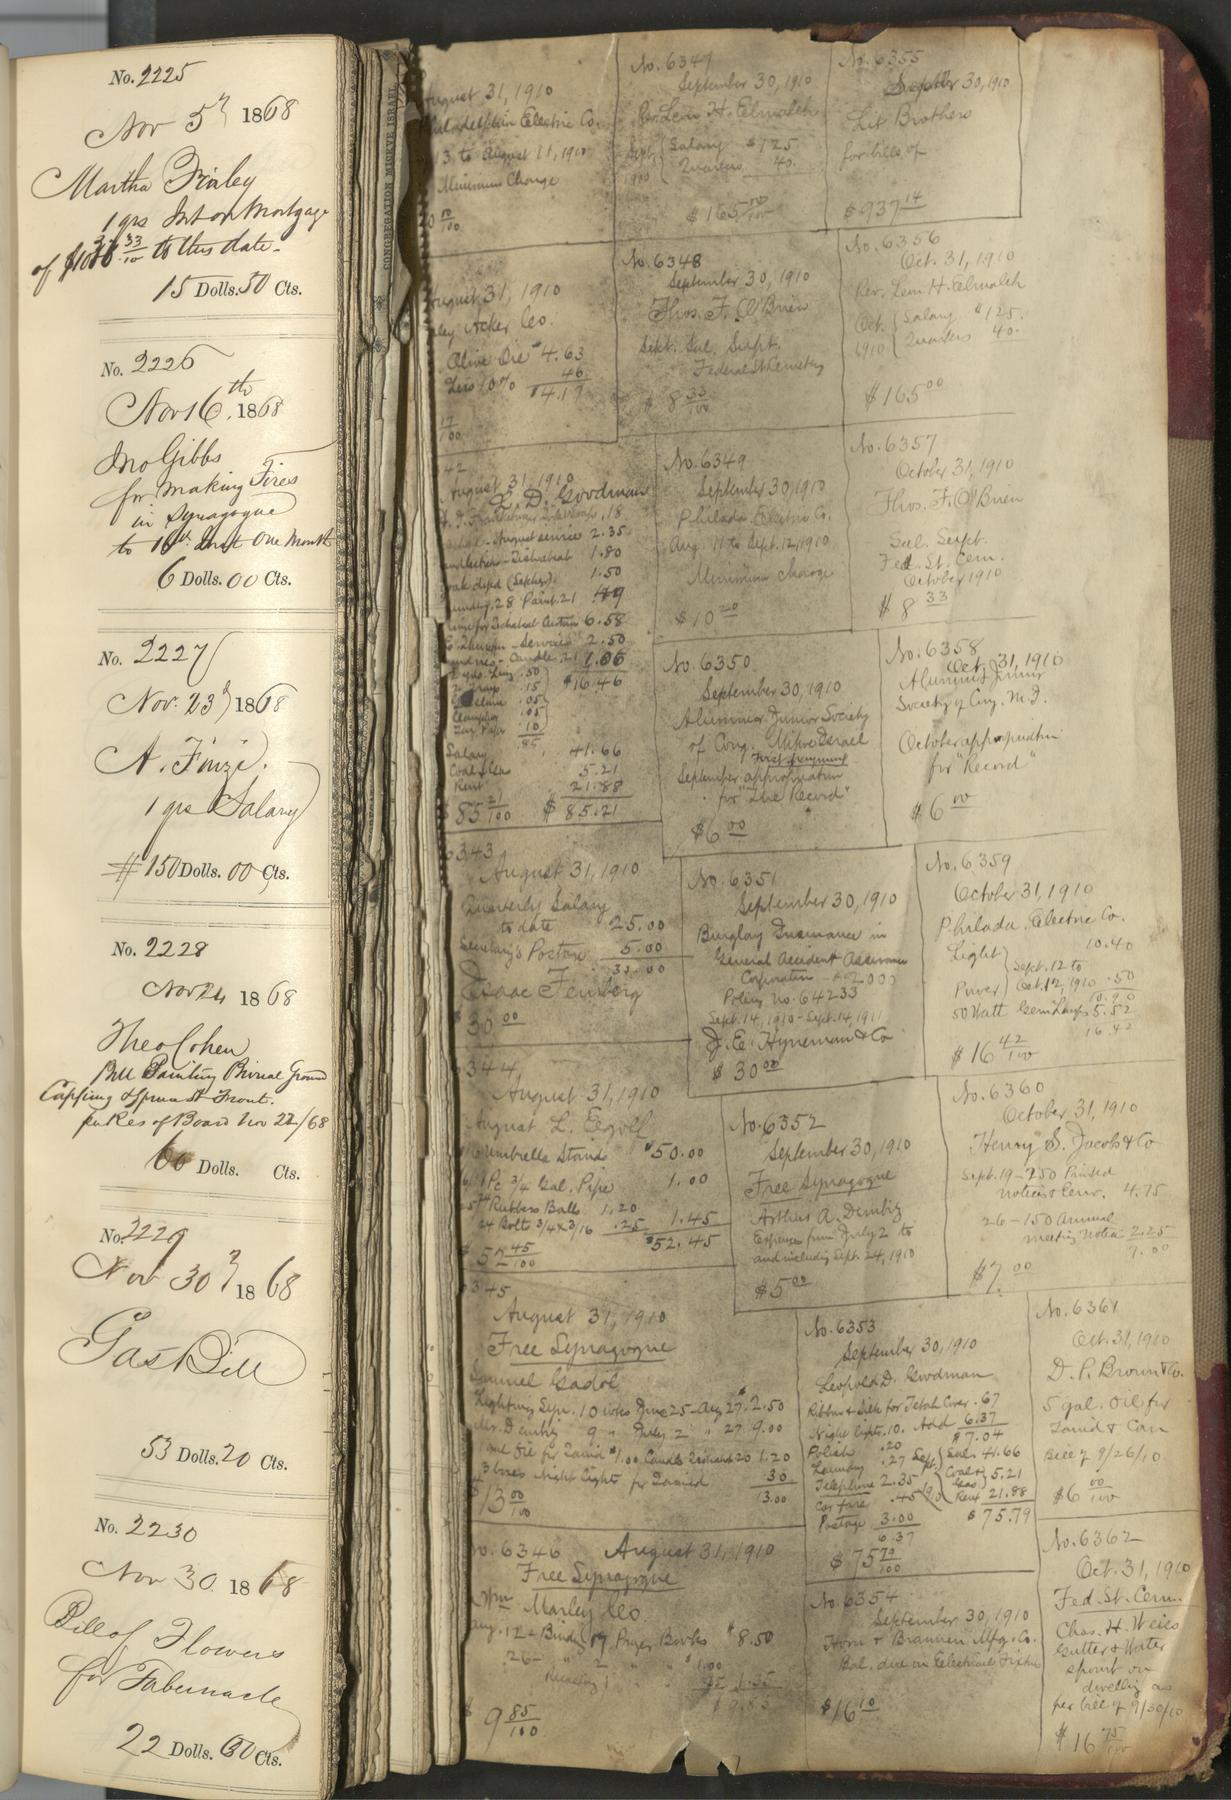 No. 2225
Nov 5th 1868
Martha Finley
1 yrs Int on Mortgage
to this date
15 Dolls. 50 Cts.
No. 2226
Nov 16th 1868
Jno Gibbs
for Making Fires
in Synagogue
to 16th Inst One Month
6 Dolls. 00 Cts.
No. 2227
Nov. 23d 1868
A. Finzi.
1 qrs Salary
# 150 Dolls. 00 Cts.
No. 2228
Nov 24 1868
Theo Cohen
Bill Painting Burial Ground
Capping Spruce St Front.
per Res of Board Nov 22/68
60 Dolls. Cts.
No. 2229
Nov 30th 1868
Gas Bill
53 Dolls. 20 Cts.
No. 2230
Nov 30. 1868
Bill of Flowers
for Tabernacle
22 Dolls. 60 Cts.
CONGREGATION MICKVE ISRAEL
August 31, 1910
Philadelphia Electric Co.
13 to August 11, 1910
Minimum Charge
August 31, 1910
Acker Co.
Olive Oil $4.63
Less 10% 46
4.17
17/100
42
August 31, 1910
L. D. Goodman
August service 2.35
1.80
1.50
6.58
2.50
$16.46
Salary 41.66
Coal & Gas 5.21
Rent 21.88
$85 21/100 $85.21
6343
August 31, 1910
Quarterly Salary
to date 25.00
Secretary's Postage 5.00
30.00
Isaac Feinberg
$30 00
6344
August 31, 1910
Umbrella Stands $50.00
1 Pc 3/4 Gal. Pipe 1.00
Rubber Balls 1.20
24 Bolts 3/4 x 3/16 .25 1.45
$52.45
6345
August 31, 1910
Free Synagogue
Samuel Gadol
Lighting Syn. 10 wks June 25 - Aug 27 $2.50
9 " July 2 " 27 9.00
3 boxes Night Lights for Tamid 30
13.00
$13 00/100
No. 6346 August 31, 1910
Free Synagogue
Wm Marley Co.
Aug. 12 - Binding 17 Prayer Books $8.50
$9 85/100
No. 6347
September 30, 1910
Rev. Leon H. Elmaleh
Sept. 1910 Salary $125
Quarters 40.
$165 00/100
No. 6348
September 30, 1910
Thos. F. O'Brien
Sept. Sal. Supt.
Federal St Cemetery
$8 33/100
No. 6349
September 30, 1910
Philada. Electric Co.
Aug. 11 to Sept. 12, 1910
Minimum charge
$10 20
No. 6350
September 30, 1910
Alumni Junior Society
of Cong. Mikve Israel
First beginning
September appropriation
for "The Record"
$6 00
No. 6351
September 30, 1910
Burglary Insurance in
General Accident Assurance
Corporation $2000
Policy no. 64233
Sept. 14, 1910 - Sept. 14, 1911
J. E. Hyneman & Co
$30 00
No. 6352
September 30, 1910
Free Synagogue
Arthur A. Dembitz
Expenses from July 2 to
and including Sept. 24, 1910
$5 00
No. 6353
September 30, 1910
Leopold D. Goodman
Ribbon & silk for Tebah Cover .67
Night lights .10. Add 6.37
$7.04
Polish .20
Laundry .27
Telephone 2.35
Car fare .45
Postage 3.00
6.37
Sept. 1910 Sal. 41.66
Coal & Gas 5.21
Rent 21.88
$75.79
$75 79/100
No. 6354
September 30, 1910
Horn & Brannen Mfg. Co.
Bal. due on Electrical Fixtures
$16 10
No. 6355
September 30, 1910
Lit Brothers
for bills of
$937 14
No. 6356
Oct. 31, 1910
Rev. Leon H. Elmaleh
Oct. 1910 Salary $125.
Quarters 40.
$165 00
No. 6357
October 31, 1910
Thos. F. O'Brien
Sal. Supt.
Fed. St. Cem.
October 1910
$8 33
No. 6358
Oct. 31, 1910
Alumni Junior
Society of Cong. M. I.
October appropriation
for "Record"
$6 00
No. 6359
October 31, 1910
Philada. Electric Co.
Light 10.40
Power Sept. 12 to Oct. 12, 1910 .50
10.90
50 Watt Gem Lamps 5.52
16.42
$16 42/100
No. 6360
October 31, 1910
Henry S. Jacobs & Co
Sept. 19 - 250 Printed
notices & Env. 4.75
26 - 150 Annual
meeting Notices 2.25
7.00
$7. 00
No. 6361
Oct. 31, 1910
D. P. Brown & Co.
5 gal. Oil for
Tamid & Can
Bill of 9/26/10
$6 00/100
No. 6362
Oct. 31, 1910
Fed. St. Cem.
Chas. H. Weiss
Gutter & Water
spout on
dwelling as
per bill of 9/30/10
$16 75/100